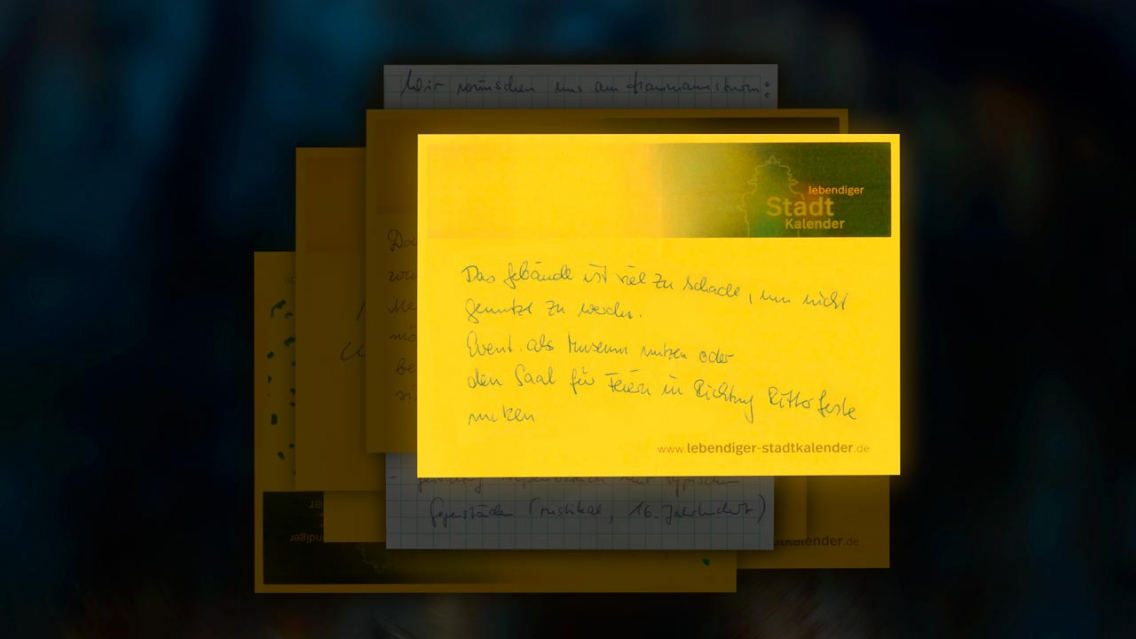 Wir wünschen uns am Hausmannsturm:
lebendiger
Stadt
Kalender
Das Gebäude ist viel zu schade, um nicht
genutzt zu werden.
Event. als Museum nutzen oder
den Saal für Feiern in Richtung Ritterfeste
nutzen
www.lebendiger-stadtkalender.de
mit typischen
Gegenständen (rustikal, 16. Jahrhundert)